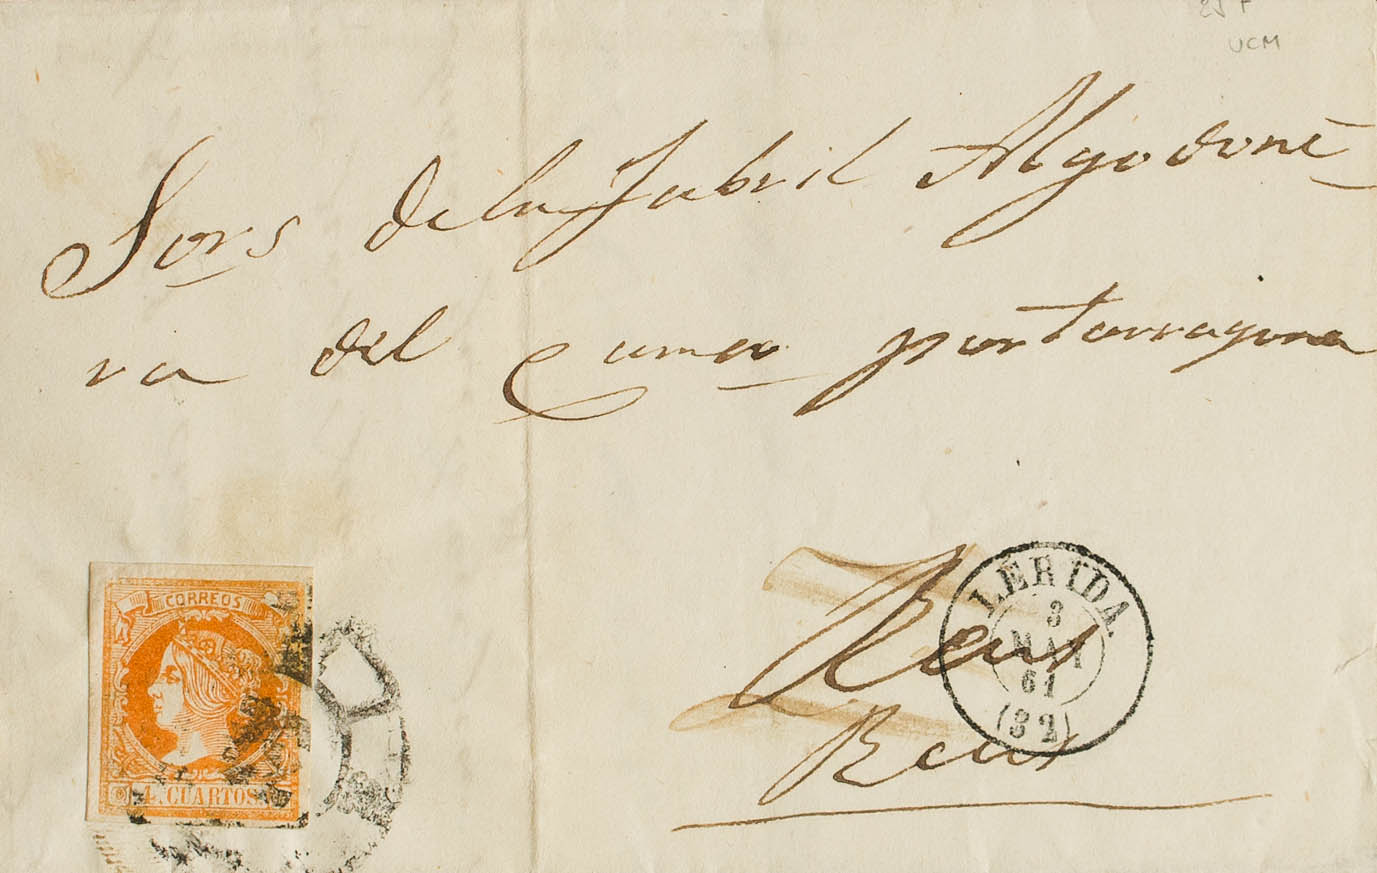 UCM
Sors de la Fabril Algodone
ra del Camco por Tarragona
CORREOS
4. CUARTOS
LERIDA.
3
MAY
61
(32)
Reus
Reus